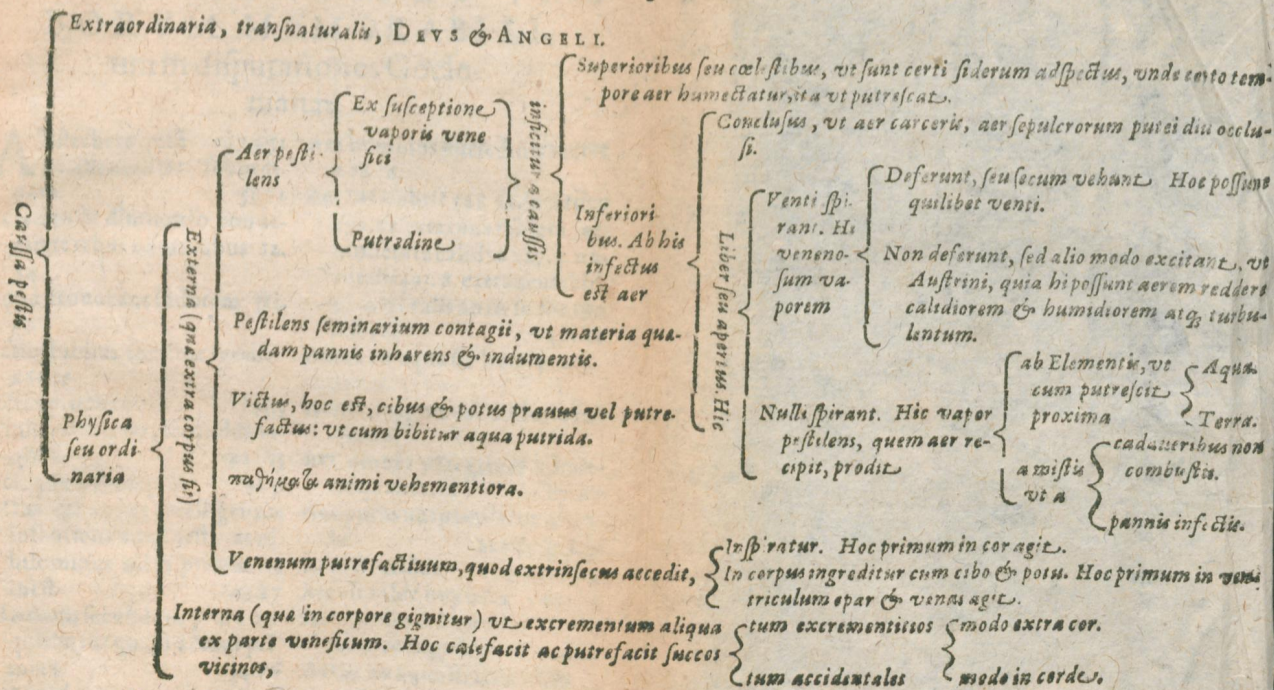 Extraordinaria, tranſnaturalis, DEVS & ANGELI.
Cauſſa peſtis
Phyſica
ſeu ordi-
naria
Externa (quæ extra corpus fit)
Aer peſti-
lens
Ex ſuſceptione
vaporis vene
fici
Putredine
inficitur a cauſſis
Superioribus ſeu cœleſtibus, vt ſunt certi ſiderum adſpectus, vnde certo tem-
pore aer humectatur, ita vt putreſcat.
Inferiori
bus. Ab his
infectus
eſt aer
Concluſus, vt aer carceris, aer ſepulcrorum putei diu occlu-
ſi.
Liber ſeu apertus. Hic
Venti ſpi-
rant. Hi
veneno-
ſum va-
porem
Deferunt, ſeu ſecum vehunt Hoc poſſunt
quilibet venti.
Non deferunt, ſed alio modo excitant, vt
Auſtrini, quia hi poſſunt aerem reddere
calidiorem & humidiorem atq; turbu-
lentum.
Nulli ſpirant. Hic vapor
peſtilens, quem aer re-
cipit, prodit
ab Elementis, vt
cum putreſcit
proxima
Aqua.
Terra.
a miſtis
vt a
cadaueribus non
combuſtis.
pannis infectis.
Peſtilens ſeminarium contagii, vt materia quæ-
dam pannis inhærens & indumentis.
Victus, hoc eſt, cibus & potus prauus vel putre-
factus: vt cum bibitur aqua putrida.
παθήματα animi vehementiora.
Venenum putrefactiuum, quod extrinſecus accedit,
Inſpiratur. Hoc primum in cor agit.
In corpus ingreditur cum cibo & potu. Hoc primum in ven-
triculum epar & venas agit.
Interna (quæ in corpore gignitur) vt excrementum aliqua
ex parte veneficum. Hoc calefacit ac putrefacit ſuccos
vicinos,
tum excrementitios
tum accidentales
modo extra cor.
modo in corde.